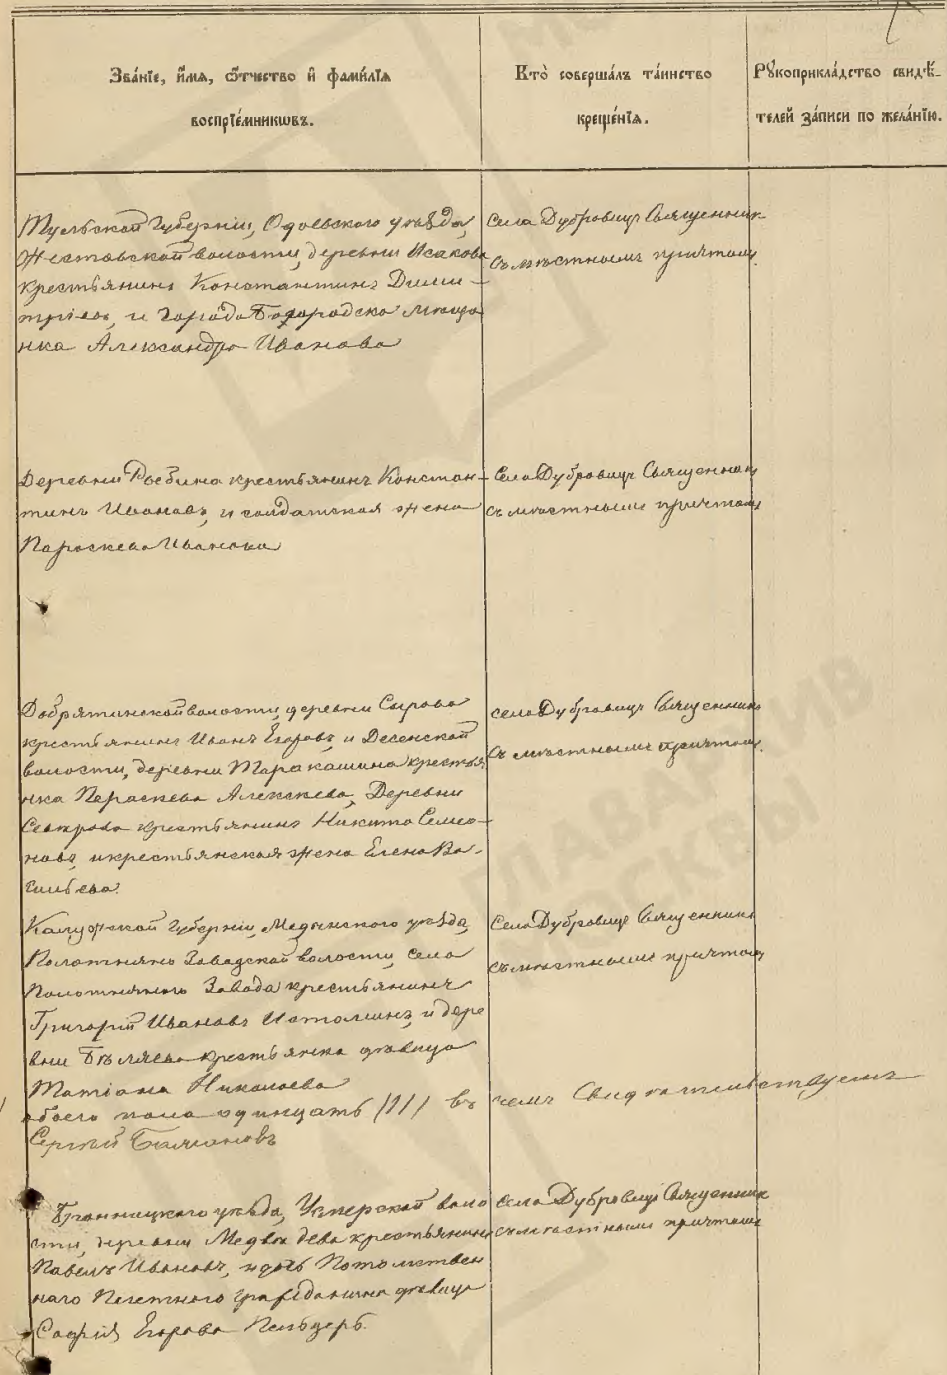 Зва́нїе, и҆́мѧ, ѻ҆́тчество и҆ фами́лїѧ
воспрїе́мникѡвъ.
Кто̀ соверша́лъ та́инство
креще́нїѧ.
Рꙋкоприкла́дство свидѣ́-
телей за́писи по жела́нїю.
Тульской Губерніи, Одоевскаго уѣзда,
Жестовской волости, деревни Исакова
крестьянинъ Константинъ Дими-
тріевъ, и города Богородска мѣща
нка Александра Иванова
Села Дубровицъ Священник
съ мѣстнымъ причтомъ.
Деревни крестьянинъ Констан-
тинъ Ивановъ, и солдатская жена
Параскева Иванова
Села Дубровицъ Священникъ
съ мѣстнымъ причтомъ
Добрятинской волости, деревни Сырова
крестьянинъ Иванъ Егоровъ и Десенской
волости, деревни Таракашина крестья
нка Параскева Алексѣева, Деревни
крестьянинъ Никита Семео-
новъ, и крестьянская жена Елена Ва-
сильева.
села Дубровицъ Священникъ
съ мѣстнымъ причтомъ.
Калужской Губерніи, Медынскаго уѣзда,
Полотняно Заводской волости, села
Полотнянаго Завода крестьянинъ
Григорій Ивановъ Истоминъ, и дере
вни Бѣляева крестьянка дѣвица
Татіана Николаева
Села Дубровицъ Священникъ
съ мѣстнымъ причтомъ
обоего пола одинцать /11/ въ чемъ Свидѣтельствуемъ
Сергѣй
Бронницкаго уѣзда, воло
сти, деревни Медвѣдева крестьянинъ
Павелъ Ивановъ, и дочь Потомствен
наго Почетнаго Гражданина дѣвица
Софія Егорова
села Дубровицъ Священник
съ мѣстнымъ причтомъ
ГЛАВАРХИВ
МОСКВЫ